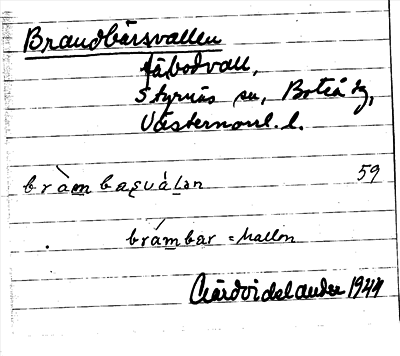 Brandbärsvallen
fäbodvall,
Styrnäs sn, Boteå tg,
Västernorrl. l.
bràm baʂválən 59
brámbar = hallon
1944